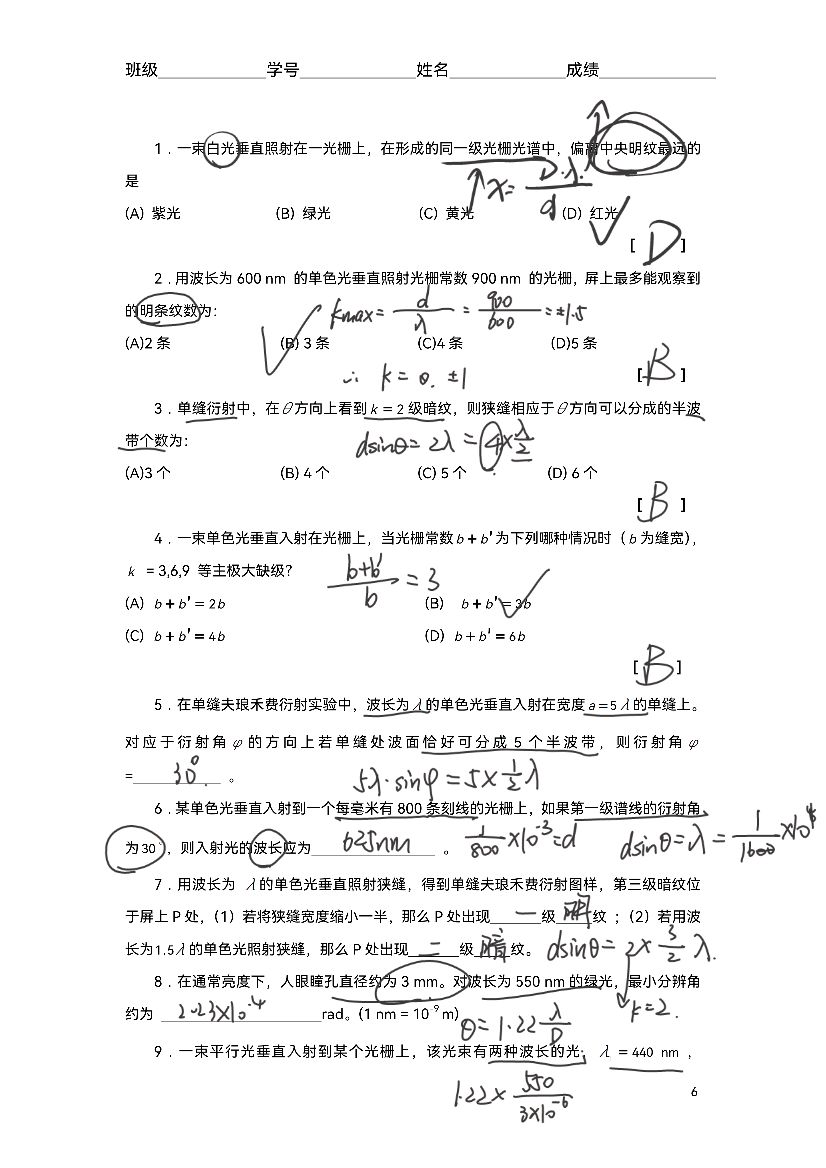 班级 学号 姓名 成绩
1．一束白光垂直照射在一光栅上，在形成的同一级光栅光谱中，偏离中央明纹最远的
是
x = D·λ / d
(A) 紫光 (B) 绿光 (C) 黄光 (D) 红光
[ D ]
2．用波长为 600 nm 的单色光垂直照射光栅常数 900 nm 的光栅，屏上最多能观察到
的明条纹数为：
kmax = d/λ = 900/600 = ±1.5
(A)2 条 (B) 3 条 (C)4 条 (D)5 条
∴ k = 0. ±1 [ B ]
3．单缝衍射中，在θ方向上看到 k = 2 级暗纹，则狭缝相应于θ方向可以分成的半波
带个数为：
dsinθ = 2λ = 4×λ/2
(A)3 个 (B) 4 个 (C) 5 个 (D) 6 个
[ B ]
4．一束单色光垂直入射在光栅上，当光栅常数 b + b' 为下列哪种情况时（b 为缝宽），
k = 3,6,9 等主极大缺级？
b+b'/b = 3
(A) b + b' = 2b (B) b + b' = 3b
(C) b + b' = 4b (D) b + b' = 6b
[ B ]
5．在单缝夫琅禾费衍射实验中，波长为λ的单色光垂直入射在宽度 a=5λ的单缝上。
对应于衍射角φ的方向上若单缝处波面恰好可分成 5 个半波带，则衍射角φ
= 30° 。
5λ·sinφ = 5×1/2λ
6．某单色光垂直入射到一个每毫米有 800 条刻线的光栅上，如果第一级谱线的衍射角
为 30°，则入射光的波长应为 625nm 。
1/800 ×10-3=d dsinθ=λ= 1/1600
7．用波长为 λ的单色光垂直照射狭缝，得到单缝夫琅禾费衍射图样，第三级暗纹位
于屏上 P 处，（1）若将狭缝宽度缩小一半，那么 P 处出现 一 级 明 纹 ；（2）若用波
长为1.5λ的单色光照射狭缝，那么 P 处出现 二 级 暗 纹。
dsinθ= 2× 3/2 λ.
k=2.
8．在通常亮度下，人眼瞳孔直径约为 3 mm。对波长为 550 nm 的绿光，最小分辨角
约为 2.23×10-4 rad。(1 nm = 10-9 m)
θ=1.22 λ/D
9．一束平行光垂直入射到某个光栅上，该光束有两种波长的光，λ = 440 nm ，
1.22× 550/3×10-6
6